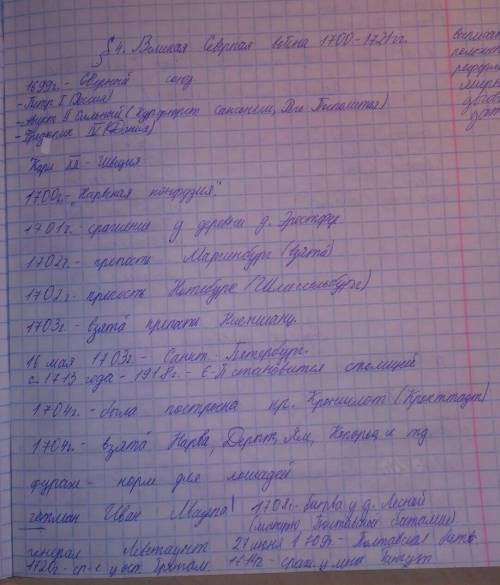 § 4. Великая Северная война 1700-1721 гг.
1699г. - Северный союз
- Пётр I (Россия)
- Август II Сильный (Курфюрст Саксонии, Речь Посполитая)
- Фредерик IV (Дания)
Карл XII - Швеция
1700г. - "Нарвская конфузия".
1701г. - сражение у деревни д. Эрестфер
1702г. - крепость Мариенбург (взята)
1702г. - крепость Нотебург (Шлиссельбург)
1703г. - взята крепость Ниеншанц.
16 мая 1703г. - Санкт-Петербург.
с 1713 года - 1918г. - С-П становится столицей
1704г. - была построена кр. Кроншлот (Кронштадт)
1704г. - взята Нарва, Дерпт, Ям, Копорье и тд.
фураж - корм для лошадей
гетман Иван Мазепа!
1708г. - битва у д. Лесной
(матерью Полтавской баталии)
генерал Левенгаупт
27 июня 1709г. - Полтавская битва
1720г - ср-е у ост. Гренгам
1714г. - сраж. у мыса Гангут